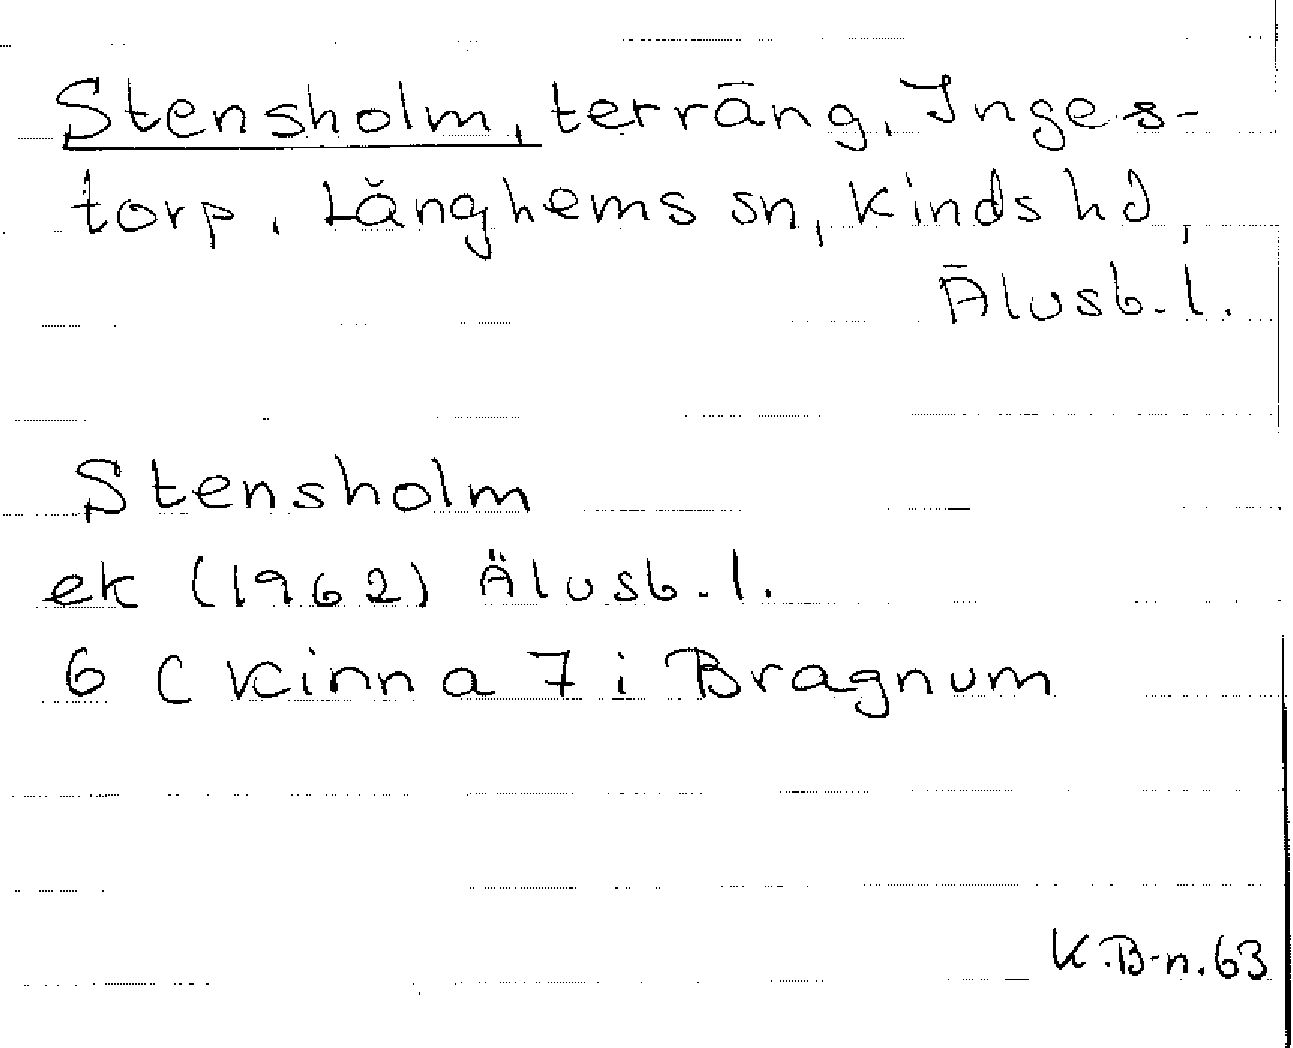 Stensholm, terräng, Inges-
torp, Långhems sn, Kinds hd,
Älvsb. l.
Stensholm
ek (1962) Älvsb. l.
6 C Kinna 7 i Bragnum
K.B-n. 63